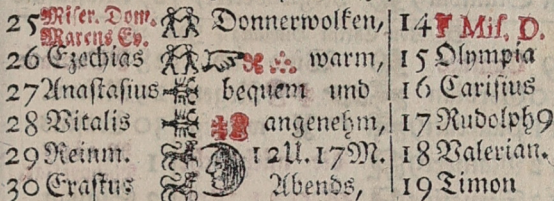 25 Miser. Dom. Marcus Ev. Donnerwolken, 14 Mis. D.
26 Ezechias warm, 15 Olympia
27 Anastasius bequem und 16 Carisius
28 Vitalis angenehm, 17 Rudolph9
29 Reinm. 12U.17M. 18 Valerian.
30 Erastus Abends, 19 Timon